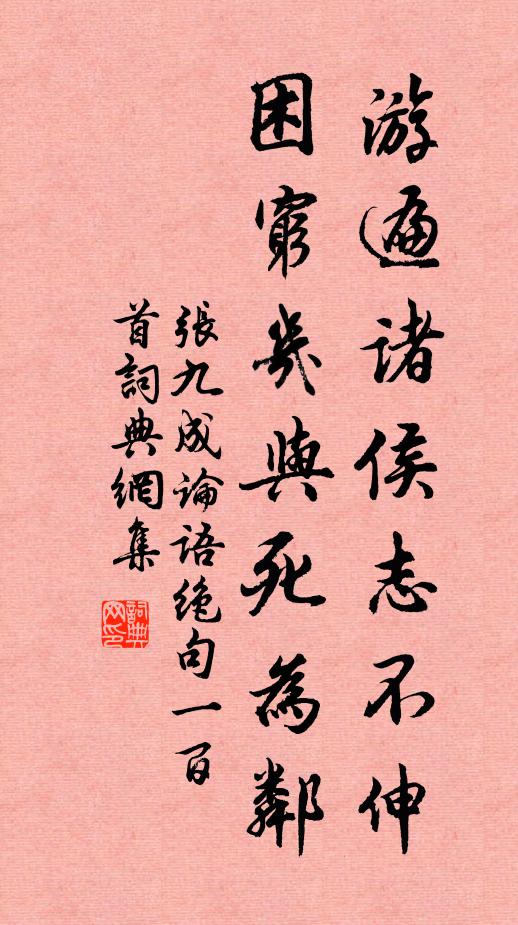 游遍諸侯志不伸
困窮幾與死為鄰
張九成论语绝句一百
首詞典網集
詞典
网印